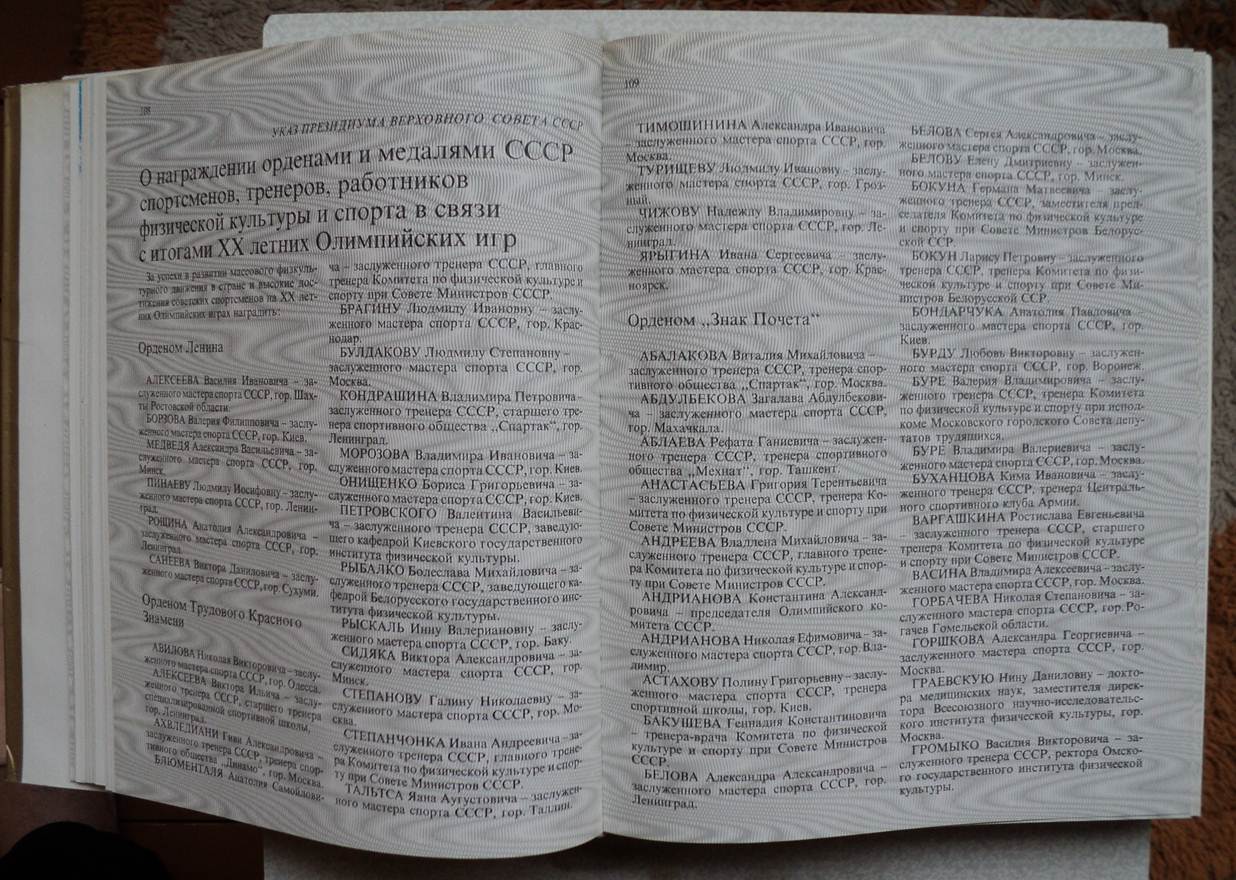 108
УКАЗ ПРЕЗИДИУМА ВЕРХОВНОГО СОВЕТА СССР
О награждении орденами и медалями СССР
спортсменов, тренеров, работников
физической культуры и спорта в связи
с итогами XX летних Олимпийских игр
За успехи в развитии массового физкуль-
турного движения в стране и высокие дос-
тижения советских спортсменов на XX лет-
них Олимпийских играх наградить:
Орденом Ленина
АЛЕКСЕЕВА Василия Ивановича – за-
служенного мастера спорта СССР, гор. Шах-
ты Ростовской области.
БОРЗОВА Валерия Филипповича – заслу-
женного мастера спорта СССР, гор. Киев.
МЕДВЕДЯ Александра Васильевича – за-
служенного мастера спорта СССР, гор.
Минск.
ПИНАЕВУ Людмилу Иосифовну – заслу-
женного мастера спорта СССР, гор. Ленин-
град.
РОЩИНА Анатолия Александровича –
заслуженного мастера спорта СССР, гор.
Ленинград.
САНЕЕВА Виктора Даниловича – заслу-
женного мастера спорта СССР, гор. Сухуми.
Орденом Трудового Красного
Знамени
АВИЛОВА Николая Викторовича – заслу-
женного мастера спорта СССР, гор. Одесса.
АЛЕКСЕЕВА Виктора Ильича – заслу-
женного тренера СССР, старшего тренера
специализированной спортивной школы,
гор. Ленинград.
АХВЛЕДИАНИ Гиви Александровича –
заслуженного тренера СССР, тренера спор-
тивного общества „Динамо“, гор. Москва.
БЛЮМЕНТАЛЯ Анатолия Самойлови-
ча – заслуженного тренера СССР, главного
тренера Комитета по физической культуре и
спорту при Совете Министров СССР.
БРАГИНУ Людмилу Ивановну – заслу-
женного мастера спорта СССР, гор. Крас-
нодар.
БУЛДАКОВУ Людмилу Степановну –
заслуженного мастера спорта СССР, гор.
Москва.
КОНДРАШИНА Владимира Петровича –
заслуженного тренера СССР, старшего тре-
нера спортивного общества „Спартак“, гор.
Ленинград.
МОРОЗОВА Владимира Ивановича – за-
служенного мастера спорта СССР, гор. Киев.
ОНИЩЕНКО Бориса Григорьевича – за-
служенного мастера спорта СССР, гор. Киев.
ПЕТРОВСКОГО Валентина Васильеви-
ча – заслуженного тренера СССР, заведую-
щего кафедрой Киевского государственного
института физической культуры.
РЫБАЛКО Болеслава Михайловича – за-
служенного тренера СССР, заведующего ка-
федрой Белорусского государственного инс-
титута физической культуры.
РЫСКАЛЬ Инну Валериановну – заслу-
женного мастера спорта СССР, гор. Баку.
СИДЯКА Виктора Александровича – за-
служенного мастера спорта СССР, гор.
Минск.
СТЕПАНОВУ Галину Николаевну – за-
служенного мастера спорта СССР, гор. Мо-
сква.
СТЕПАНЧОНКА Ивана Андреевича – за-
служенного тренера СССР, главного трене-
ра Комитета по физической культуре и спор-
ту при Совете Министров СССР.
ТАЛЬТСА Яана Аугустовича – заслужен-
ного мастера спорта СССР, гор. Таллин.
109
ТИМОШИНИНА Александра Ивановича
– заслуженного мастера спорта СССР, гор.
Москва.
ТУРИЩЕВУ Людмилу Ивановну – заслу-
женного мастера спорта СССР, гор. Гроз-
ный.
ЧИЖОВУ Надежду Владимировну – за-
служенного мастера спорта СССР, гор. Ле-
нинград.
ЯРЫГИНА Ивана Сергеевича – заслу-
женного мастера спорта СССР, гор. Крас-
ноярск.
Орденом „Знак Почета“
АБАЛАКОВА Виталия Михайловича –
заслуженного тренера СССР, тренера спор-
тивного общества „Спартак“, гор. Москва.
АБДУЛБЕКОВА Загалава Абдулбекови-
ча – заслуженного мастера спорта СССР,
гор. Махачкала.
АБЛАЕВА Рефата Ганиевича – заслужен-
ного тренера СССР, тренера спортивного
общества „Мехнат“, гор. Ташкент.
АНАСТАСЬЕВА Григория Терентьевича
– заслуженного тренера СССР, тренера Ко-
митета по физической культуре и спорту при
Совете Министров СССР.
АНДРЕЕВА Владлена Михайловича – за-
служенного тренера СССР, главного трене-
ра Комитета по физической культуре и спор-
ту при Совете Министров СССР.
АНДРИАНОВА Константина Александ-
ровича – председателя Олимпийского ко-
митета СССР.
АНДРИАНОВА Николая Ефимовича – за-
служенного мастера спорта СССР, гор. Вла-
димир.
АСТАХОВУ Полину Григорьевну – заслу-
женного мастера спорта СССР, тренера
спортивной школы, гор. Киев.
БАКУШЕВА Геннадия Константиновича
– тренера-врача Комитета по физической
культуре и спорту при Совете Министров
СССР.
БЕЛОВА Александра Александровича –
заслуженного мастера спорта СССР, гор.
Ленинград.
БЕЛОВА Сергея Александровича – заслу-
женного мастера спорта СССР, гор. Москва.
БЕЛОВУ Елену Дмитриевну – заслужен-
ного мастера спорта СССР, гор. Минск.
БОКУНА Германа Матвеевича – заслу-
женного тренера СССР, заместителя пред-
седателя Комитета по физической культуре
и спорту при Совете Министров Белорус-
ской ССР.
БОКУН Ларису Петровну – заслуженного
тренера СССР, тренера Комитета по физи-
ческой культуре и спорту при Совете Ми-
нистров Белорусской ССР.
БОНДАРЧУКА Анатолия Павловича –
заслуженного мастера спорта СССР, гор.
Киев.
БУРДУ Любовь Викторовну – заслужен-
ного мастера спорта СССР, гор. Воронеж.
БУРЕ Валерия Владимировича – заслу-
женного тренера СССР, тренера Комитета
по физической культуре и спорту при испол-
коме Московского городского Совета депу-
татов трудящихся.
БУРЕ Владимира Валериевича – заслу-
женного мастера спорта СССР, гор. Москва.
БУХАНЦОВА Кима Ивановича – заслу-
женного тренера СССР, тренера Централь-
ного спортивного клуба Армии.
ВАРГАШКИНА Ростислава Евгеньевича
– заслуженного тренера СССР, старшего
тренера Комитета по физической культуре
и спорту при Совете Министров СССР.
ВАСИНА Владимира Алексеевича – заслу-
женного мастера спорта СССР, гор. Москва.
ГОРБАЧЕВА Николая Степановича – за-
служенного мастера спорта СССР, гор. Ро-
гачев Гомельской области.
ГОРШКОВА Александра Георгиевича –
заслуженного мастера спорта СССР, гор.
Москва.
ГРАЕВСКУЮ Нину Даниловну – докто-
ра медицинских наук, заместителя дирек-
тора Всесоюзного научно-исследовательс-
кого института физической культуры, гор.
Москва.
ГРОМЫКО Василия Викторовича – за-
служенного тренера СССР, ректора Омско-
го государственного института физической
культуры.